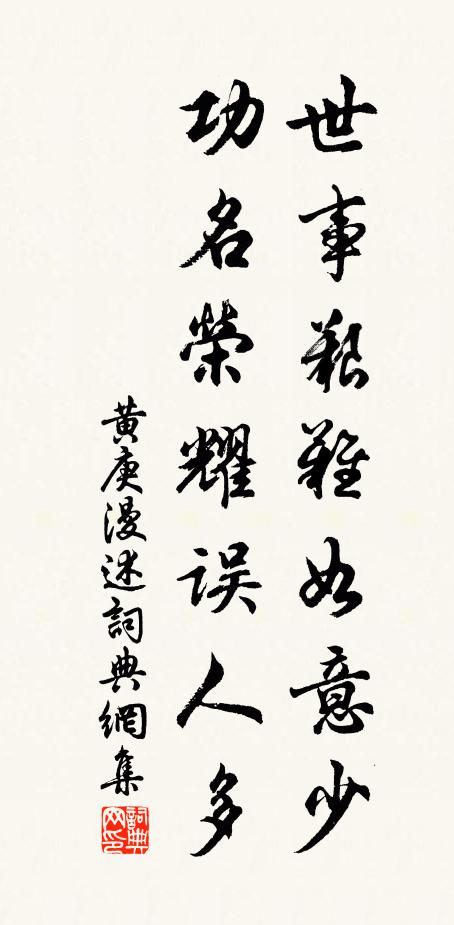 世事艱難如意少
功名榮耀误人多
黄庚漫述詞典網集
詞典网印